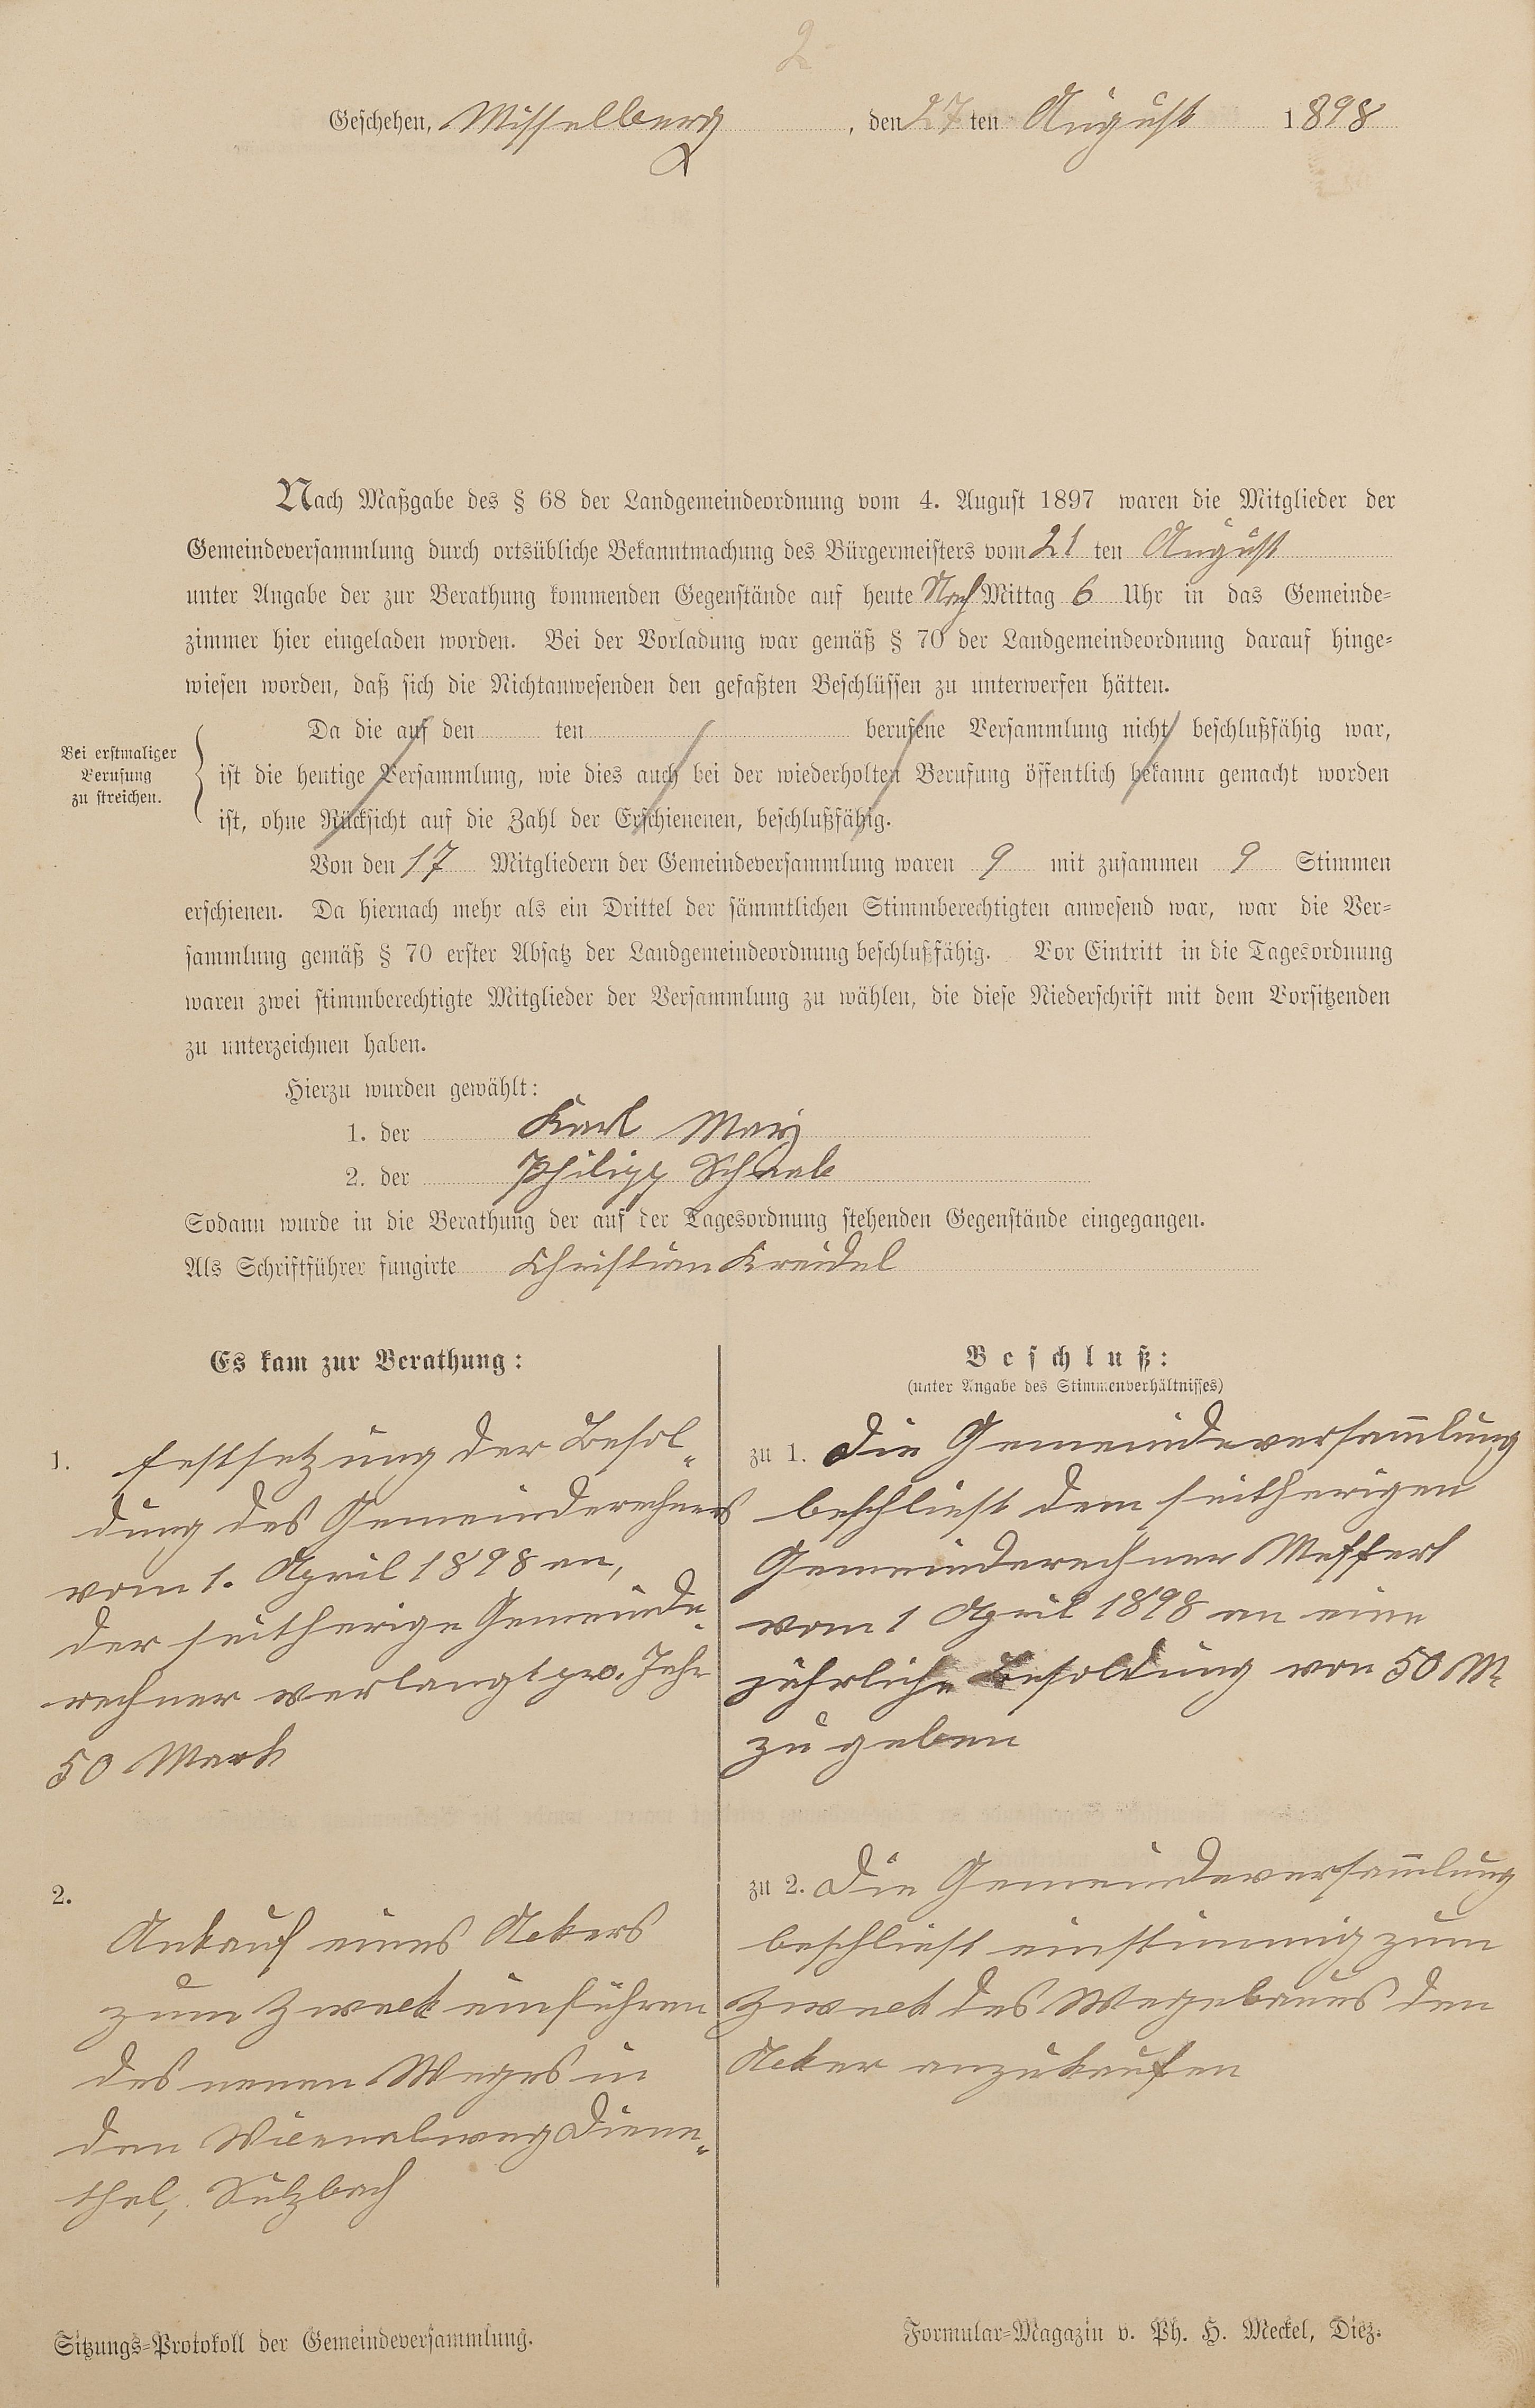 2
Geschehen, Misselberg, den 27 ten August 1898
Nach Maßgabe des § 68 der Landgemeindeordnung vom 4. August 1897 waren die Mitglieder der
Gemeindeversammlung durch ortsübliche Bekanntmachung des Bürgermeisters vom 21 ten August
unter Angabe der zur Berathung kommenden Gegenstände auf heute Nach Mittag 6 Uhr in das Gemeinde=
zimmer hier eingeladen worden. Bei der Vorladung war gemäß § 70 der Landgemeindeordnung darauf hinge=
wiesen worden, daß sich die Nichtanwesenden den gefaßten Beschlüssen zu unterwerfen hätten.
Bei erstmaliger
Berufung
zu streichen.
Da die auf den ten berufene Versammlung nicht beschlußfähig war,
ist die heutige Versammlung, wie dies auch bei der wiederholten Berufung öffentlich bekannt gemacht worden
ist, ohne Rücksicht auf die Zahl der Erschienenen, beschlußfähig.
Von den 17 Mitgliedern der Gemeindeversammlung waren 9 mit zusammen 9 Stimmen
erschienen. Da hiernach mehr als ein Drittel der sämmtlichen Stimmberechtigten anwesend war, war die Ver=
sammlung gemäß § 70 erster Absatz der Landgemeindeordnung beschlußfähig. Vor Eintritt in die Tagesordnung
waren zwei stimmberechtigte Mitglieder der Versammlung zu wählen, die diese Niederschrift mit dem Vorsitzenden
zu unterzeichnen haben.
Hierzu wurden gewählt:
1. der Karl
2. der Philipp
Sodann wurde in die Berathung der auf der Tagesordnung stehenden Gegenstände eingegangen.
Als Schriftführer fungirte Christian Kreidel
Es kam zur Berathung:
1. Festsetzung der Besol-
dung des Gemeinderechners
vom 1. April 1898 an,
der seitherige Gemeinde-
rechner verlangt pro. Jahr
50 Mark
2.
Ankauf eines Ackers
zum Zweck einführen
des neuen Weges in
den Diene-
thal, Sulzbach
Beschluß:
(unter Angabe des Stimmenverhältnisses)
zu 1. Die Gemeindeversam̄lung
beschliest dem seitherigen
Gemeinderechner Meffert
vom 1 April 1898 an eine
jährliche Besoldung von 50 M.
zu geben
zu 2. Die Gemeindeversam̄lung
beschliest einstimmig zum
Zweck des Wegebaues den
Acker anzukaufen
Sitzungs=Protokoll der Gemeindeversammlung.
Formular=Magazin v. Ph. H. Meckel, Diez.